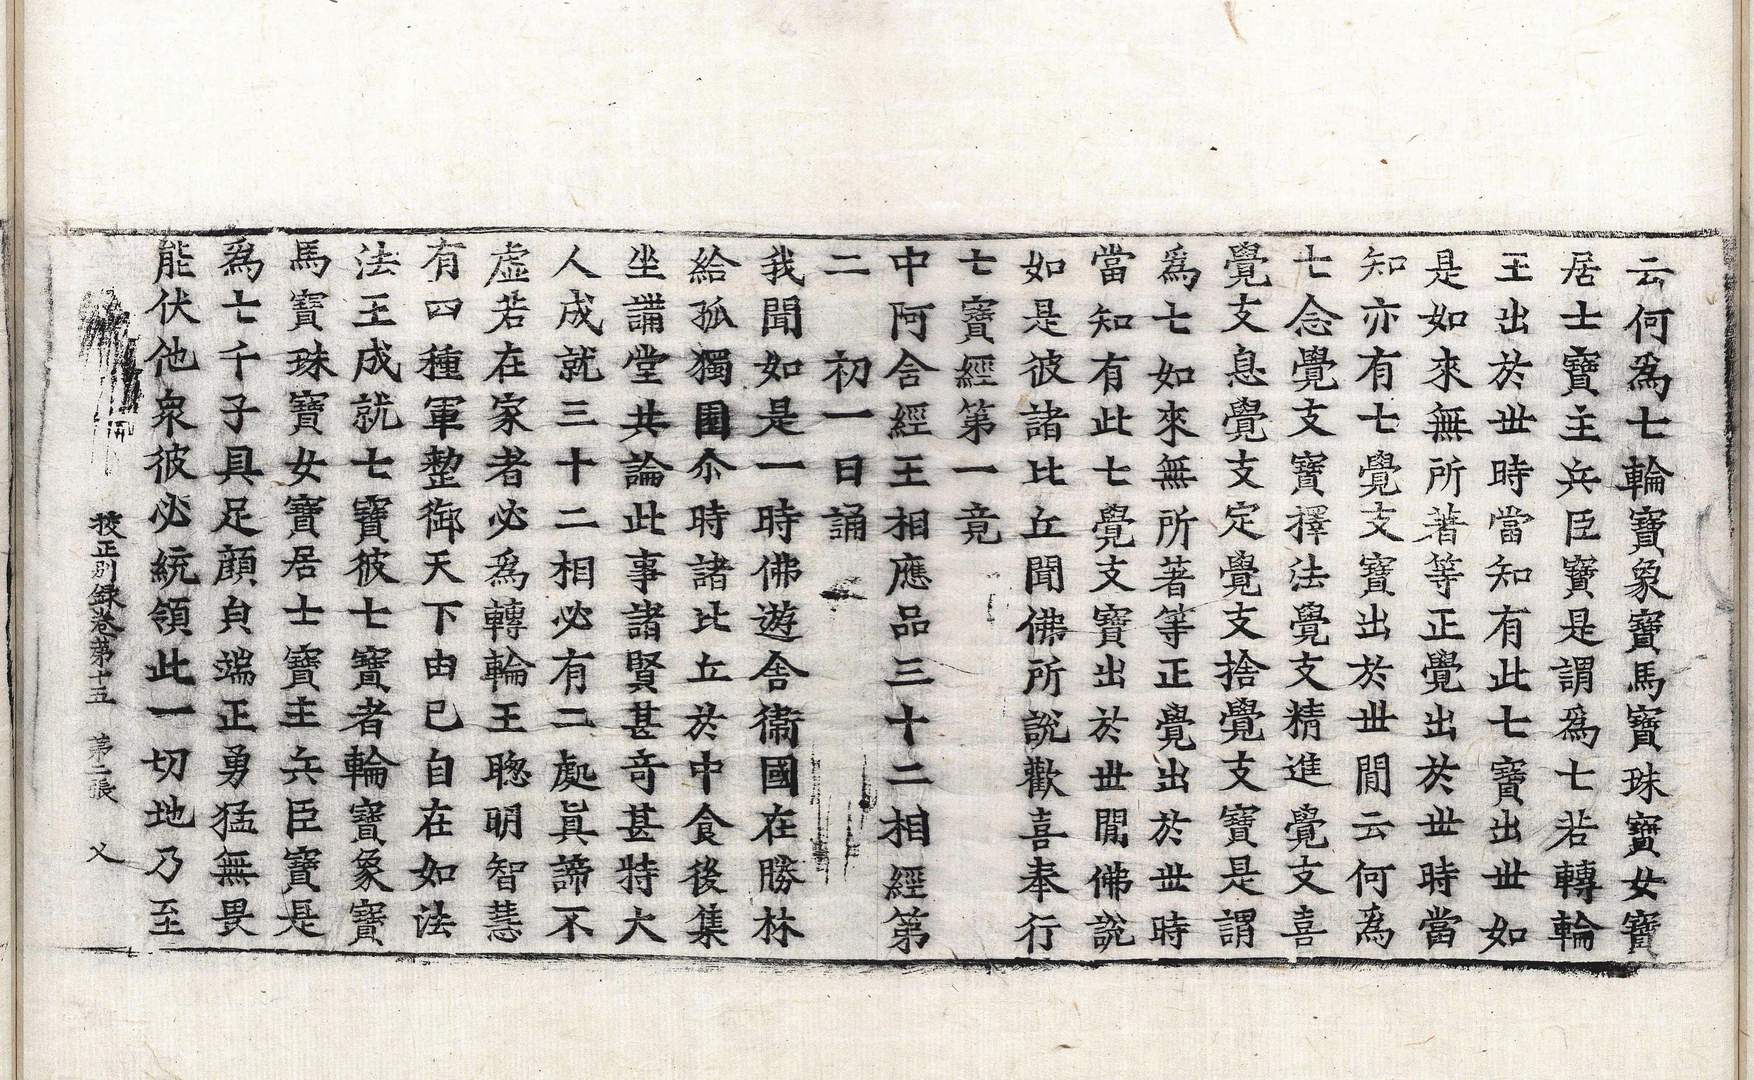 云何爲七輪寶象寶馬寶珠寶女寶
居士寶主兵臣寶是謂爲七若轉輪
王出於世時當知有此七寶出世如
是如來無所著等正覺出於世時當
知亦有七覺支寶出於世閒云何爲
七念覺支寶擇法覺支精進覺支喜
覺支息覺支定覺支捨覺支寶是謂
爲七如來無所著等正覺出於世時
當知有此七覺支寶出於世閒佛說
如是彼諸比丘聞佛所說歡喜奉行
七寶經第一竟
中阿含經王相應品三十二相經第
二　初一日誦
我聞如是一時佛遊舍衞國在勝林
給孤獨園尒時諸比丘於中食後集
坐講堂共論此事諸賢甚竒甚特大
人成就三十二相必有二處眞諦不
虛若在家者必爲轉輪王聦明智慧
有四種軍整御天下由己自在如法
法王成就七寶彼七寶者輪寶象寶
馬寶珠寶女寶居士寶主兵臣寶是
爲七千子具足顏皃端正勇猛無畏
能伏他衆彼必統領此一切地乃至
挍正别録卷第十五　第二張　乂